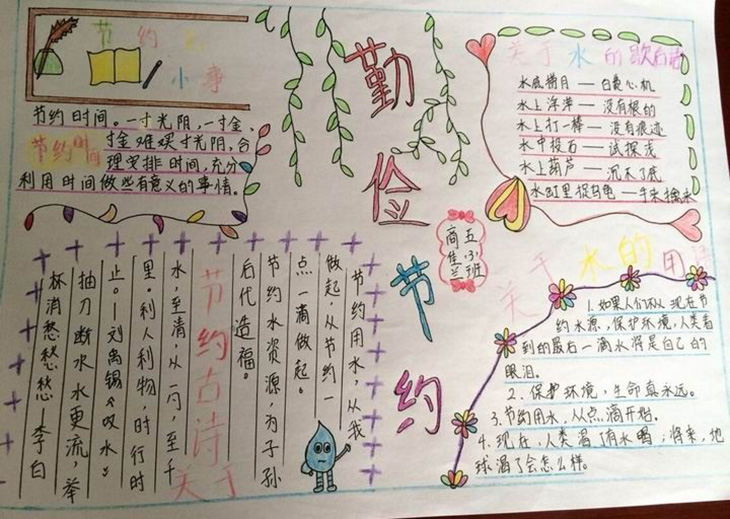 节约
小事
节约时间。一寸光阴,一寸金、
寸金难买寸光阴,合
节约时间
理安排时间,充分
利用时间做些有意义的事情。
勤
俭
节
约
五(3)班
关于水的歇后语
水底捞月——白费心机
水上浮萍——没有根的
水上打一棒——没有痕迹
水中投石——试探浅
水上葫芦——沉不了底
水缸里捉乌龟——手来擒来
关于水的用语
1.如果人们不从现在节
约水源,保护环境,人类看
到的最后一滴水将是自己的
眼泪。
2.保护环境,生命真永远。
3.节约用水,从点滴开始。
4.现在,人类渴了有水喝;将来,地
球渴了会怎么样。
节约用水,从我
做起,从节约一
点一滴做起。
节约水资源,为子孙
后代造福。
关于
节约古诗
水,至清,从一勺,至千
里。利人利物,时行时
止。—刘禹锡《叹水》
抽刀断水水更流,举
杯消愁愁愁愁—李白